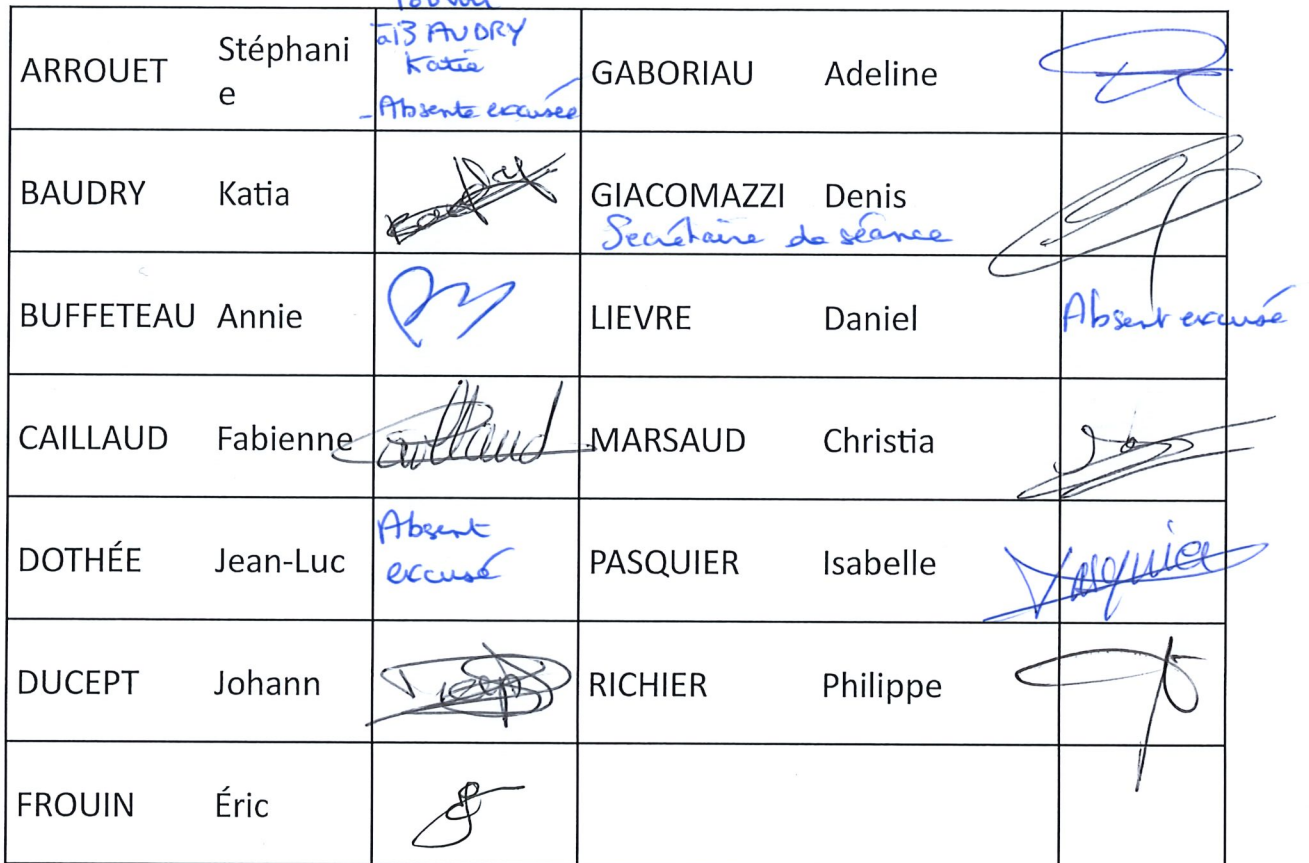 Pouvoir
à BAUDRY
Katia
ARROUET Stéphani
e
- Absente excusée
GABORIAU Adeline
BAUDRY Katia
GIACOMAZZI Denis
Secrétaire de séance
BUFFETEAU Annie
LIEVRE Daniel Absent excusé
CAILLAUD Fabienne Caillaud
MARSAUD Christia
DOTHÉE Jean-Luc Absent
excusé
PASQUIER Isabelle Pasquier
DUCEPT Johann
RICHIER Philippe
FROUIN Éric